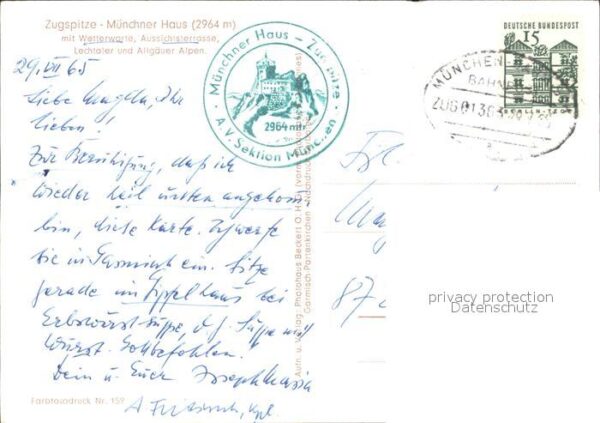 Zugspitze - Münchner Haus (2964 m)
mit Wetterwarte, Aussichtsterrasse,
Lechtaler und Allgäuer Alpen.
29.VII 65
Liebe Magda, Ihr
Lieben!
Zur Beruhigung, daß ich
wieder heil unten angekom̄
bin, diese Karte. Ich werfe
sie in Garmisch ein. Sitze
gerade im Gipfelhaus bei
Erbswurstsuppe, d.h. Suppe mit
Wurst. Gottbefohlen.
Dein u. Euer Joseph Maria
Farbtondruck Nr. 159
Münchner Haus - Zugspitze
2964 m
A.V. Sektion München
Aufn. u. Verlag: Photohaus Beckert O.H.G. (vorm.
Garmisch-Partenkirchen
DEUTSCHE BUNDESPOST
15
BERLIN-TEGEL
MÜNCHEN
BAHNP
ZUG 01363
Fr.
87
privacy protection
Datenschutz